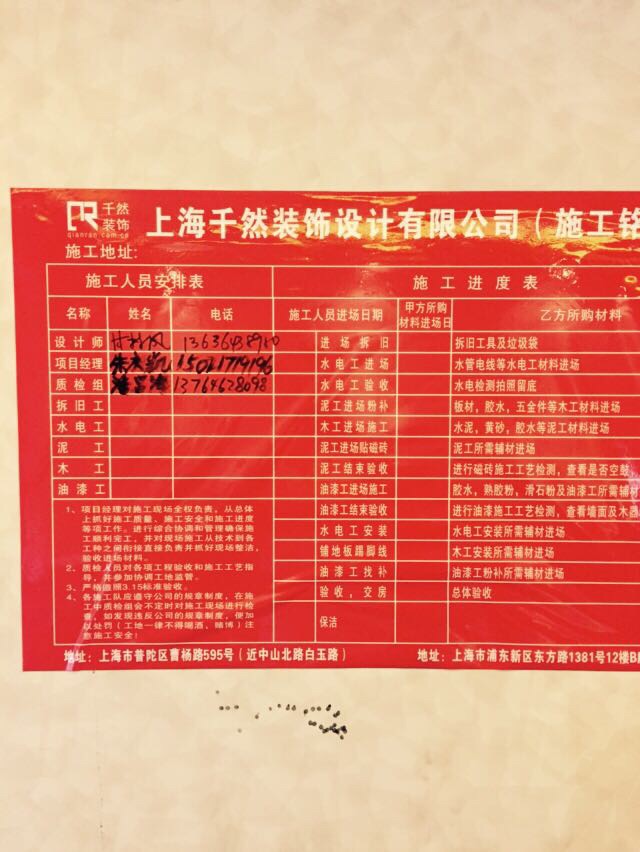 千然
装饰
qianran.com.cn
上海千然装饰设计有限公司（施工铭
施工地址：
施工人员安排表 施工进度表
名称 姓名 电话 施工人员进场日期 甲方所购材料进场日 乙方所购材料
设计师 13636438910 进场拆旧 拆旧工具及垃圾袋
项目经理 15021719196 水电工进场 水管电线等水电工材料进场
质检组 13764628098 水电工验收 水电检测拍照留底
拆旧工 泥工进场粉补 板材，胶水，五金件等木工材料进场
水电工 木工进场施工 水泥，黄砂，胶水等泥工材料进场
泥工 泥工进场贴磁砖 泥工所需辅材进场
木工 泥工结束验收 进行磁砖施工工艺检测，查看是否空鼓
油漆工 油漆工进场施工 胶水，熟胶粉，滑石粉及油漆工所需辅材
油漆工结束验收 进行油漆施工工艺检测，查看墙面及木器
水电工安装 水电工安装所需辅材进场
铺地板踢脚线 木工安装所需辅材进场
油漆工找补 油漆工粉补所需辅材进场
验收，交房 总体验收
保洁
1、项目经理对施工现场全权负责，从总体
上抓好施工质量、施工安全和施工进度
等项工作。进行综合协调和管理确保施
工顺利完工，并对现场施工从技术到各
工种之间衔接直接负责并抓好现场整洁，
验收进场材料。
2、质检人员对各项工程验收和施工工艺指
导，并参加协调工地监管。
3、严格遵照3.15标准验收。
4、各施工队应遵守公司的规章制度，在施
工中质检组会不定时对施工现场进行检
查，如发现违反公司的规章制度，便加
以处罚（工地一律不得喝酒、赌博）注
意施工安全！
地址：上海市普陀区曹杨路595号（近中山北路白玉路） 地址：上海市浦东新区东方路1381号12楼B